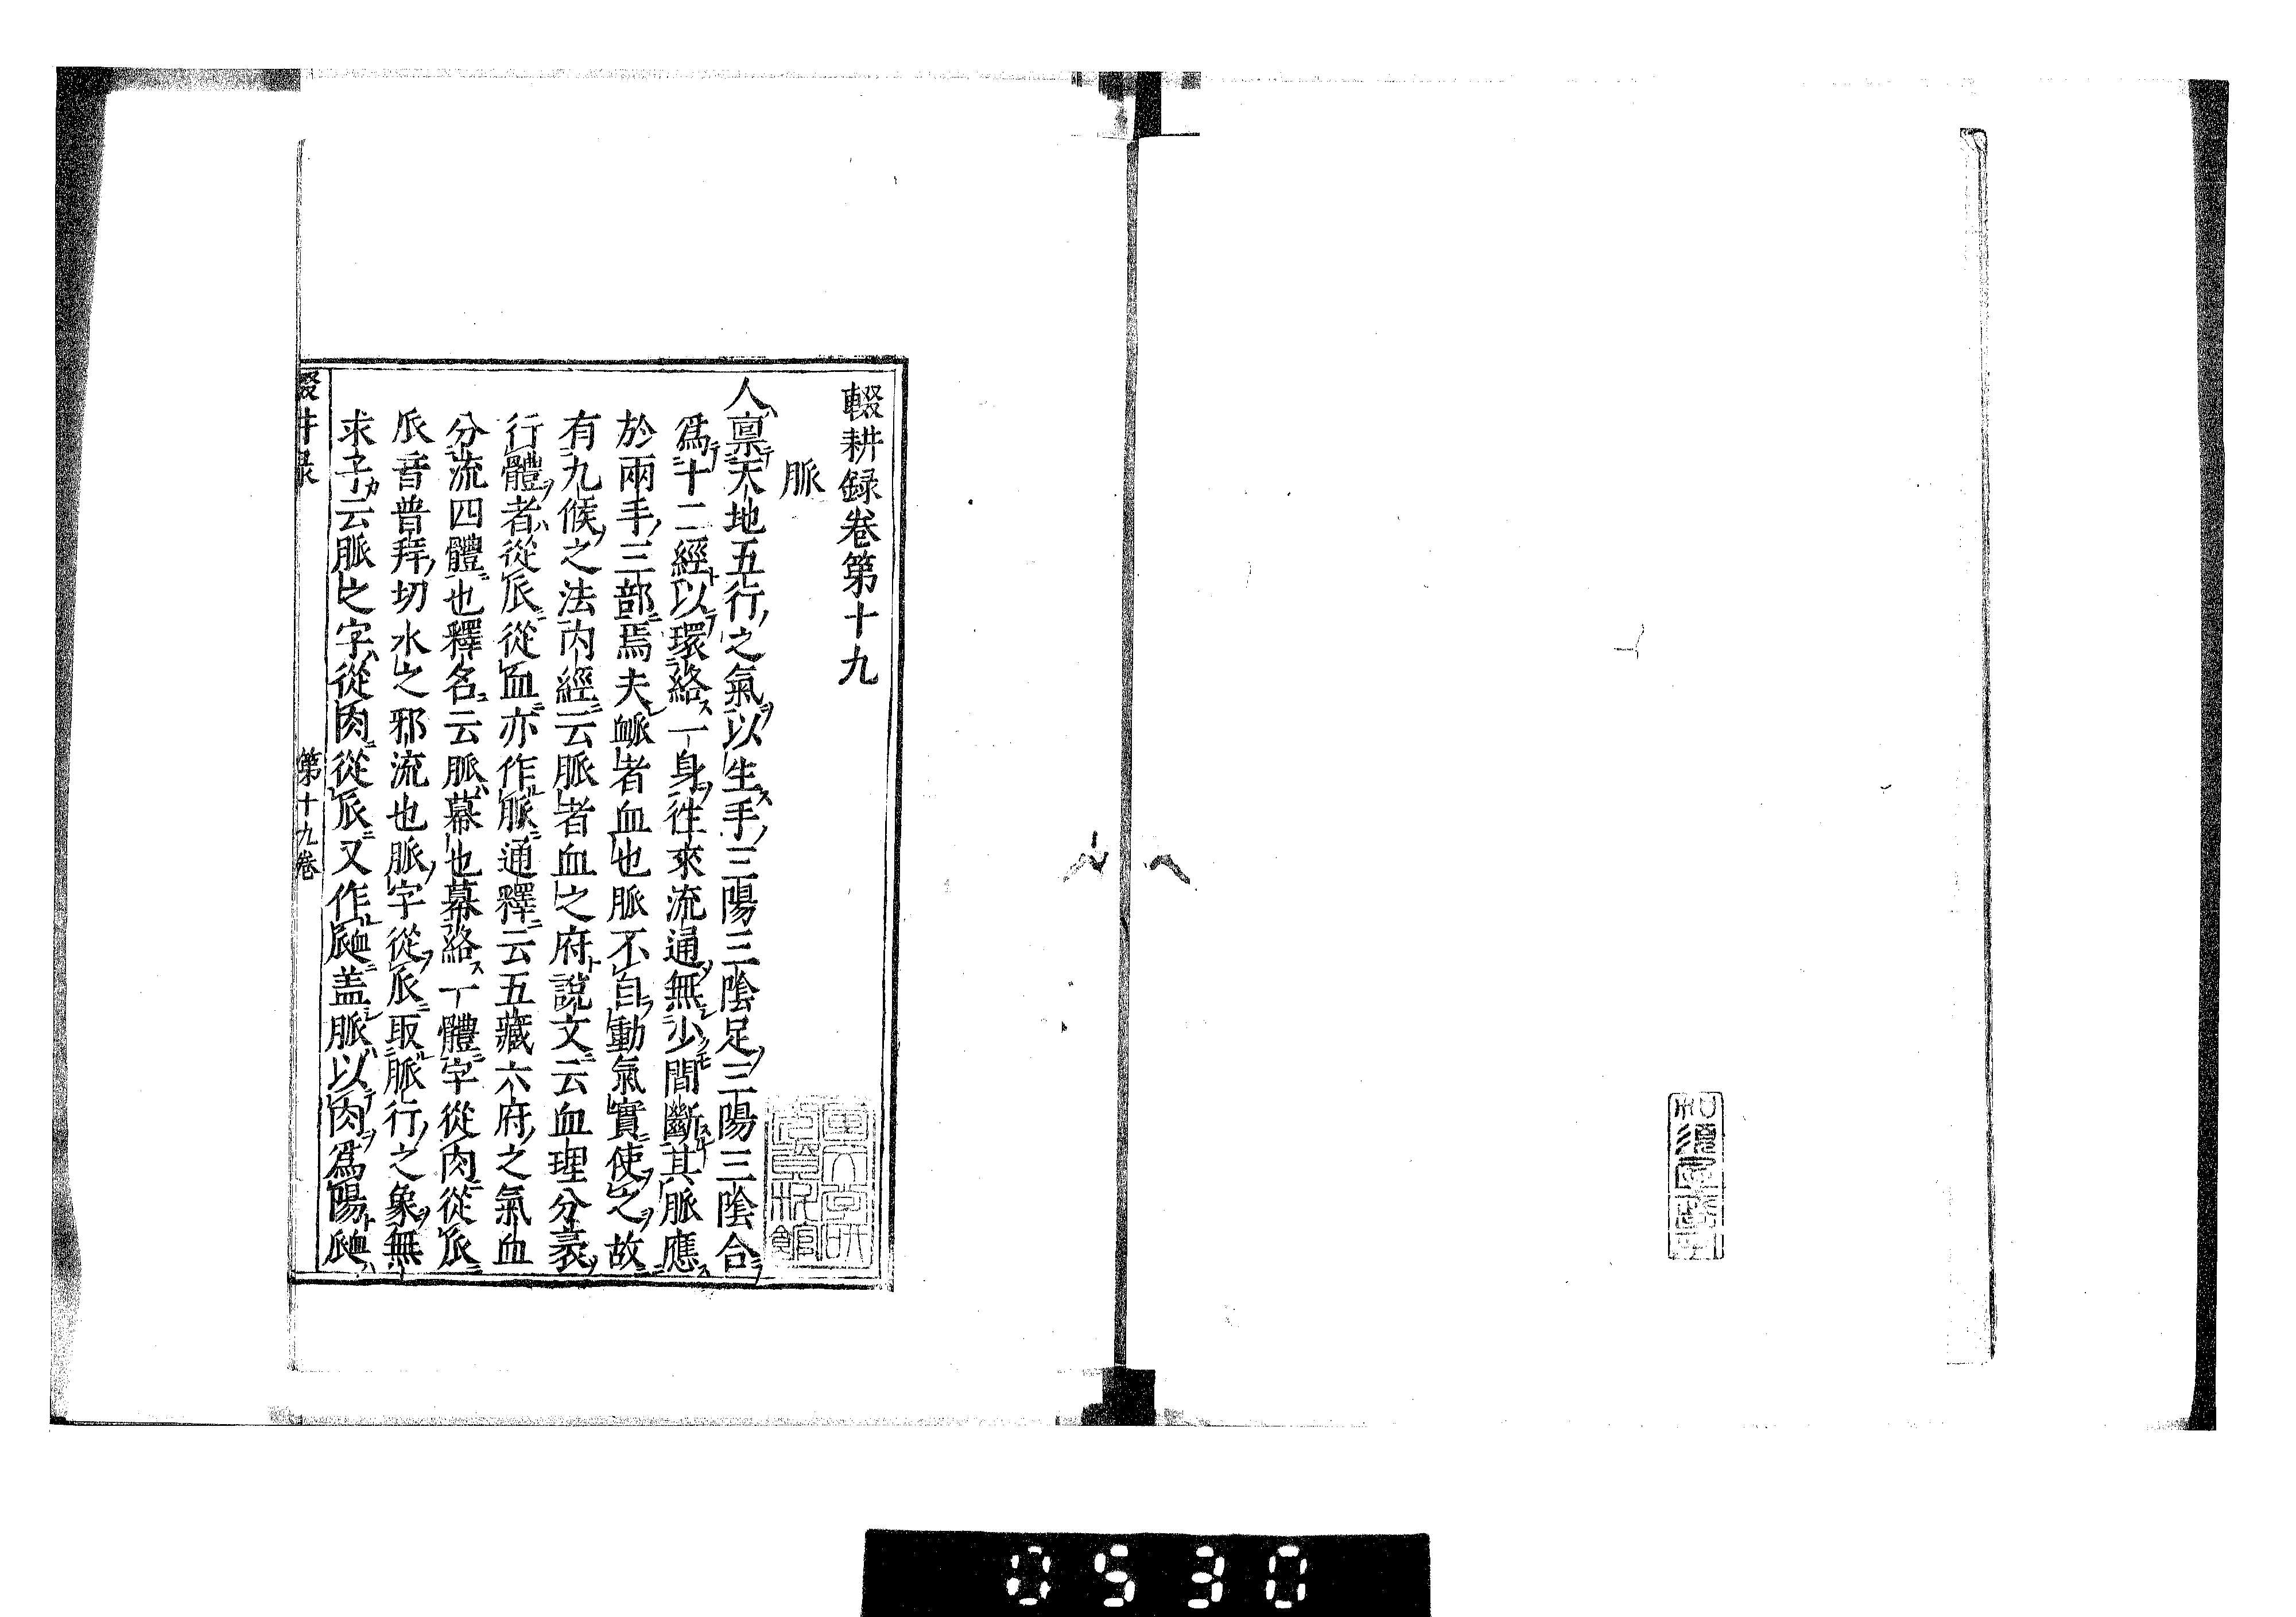 輟耕録卷第十九
脈
人禀天地五行之氣以生手三陽三陰足三陽三陰合
爲十二經以環絡一身徃來流通無少間斷其脈應
於兩手三部焉夫衇者血也脈不自動氣實使之故
有九候之法内經云脈者血之府說文云血理分衺
行體者從𠂢從血亦作脈通釋云五藏六府之氣血
分流四體也釋名云脈幕也幕絡一體字從肉從𠂢
𠂢音普拜切水之邪流也脈字從𠂢取脈行之象無
求子云脈之字從肉從𠂢又作𧖴盖脈以肉爲陽𧖴
第十九卷
0530